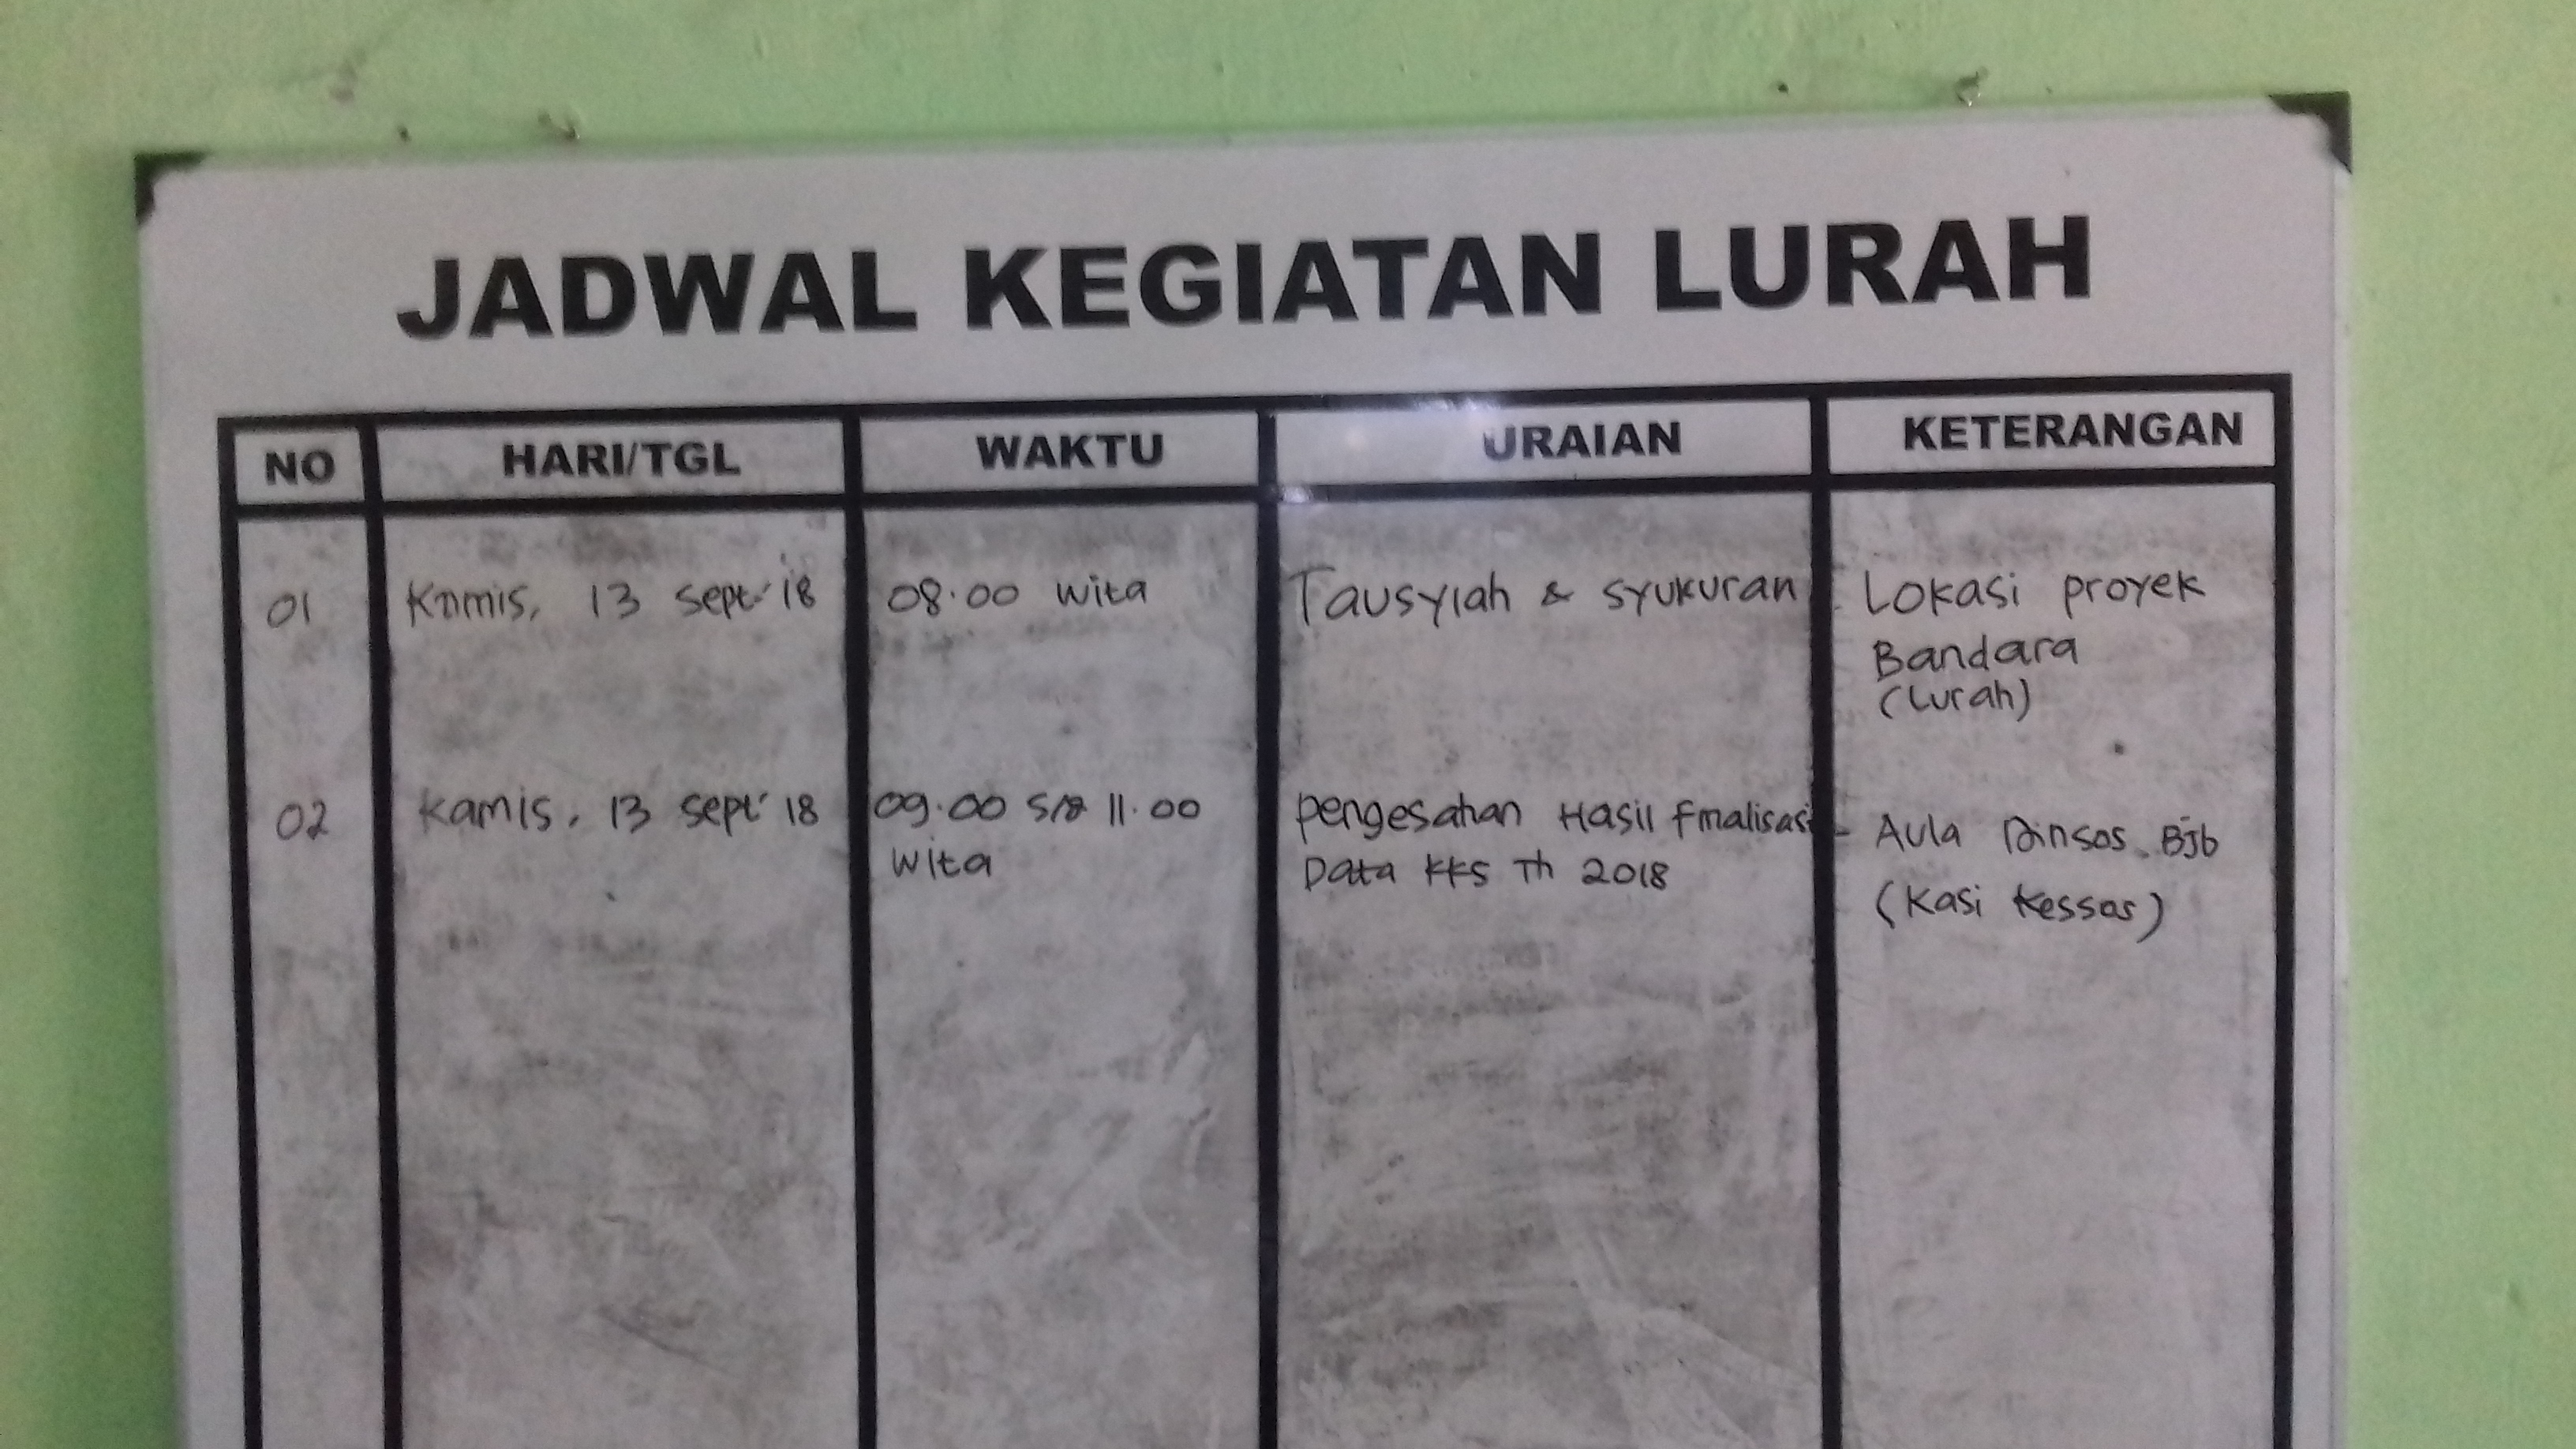 JADWAL KEGIATAN LURAH
NO HARI/TGL WAKTU URAIAN KETERANGAN
01 Kamis, 13 Sept' 18 08.00 wita Tausyiah & syukuran Lokasi proyek
Bandara
(Lurah)
02 Kamis, 13 Sept' 18 09.00 s/d 11.00 pengesahan Hasil Finalisasi Aula Dinsos Bjb
wita Data KKS Th 2018
(Kasi Kessos)